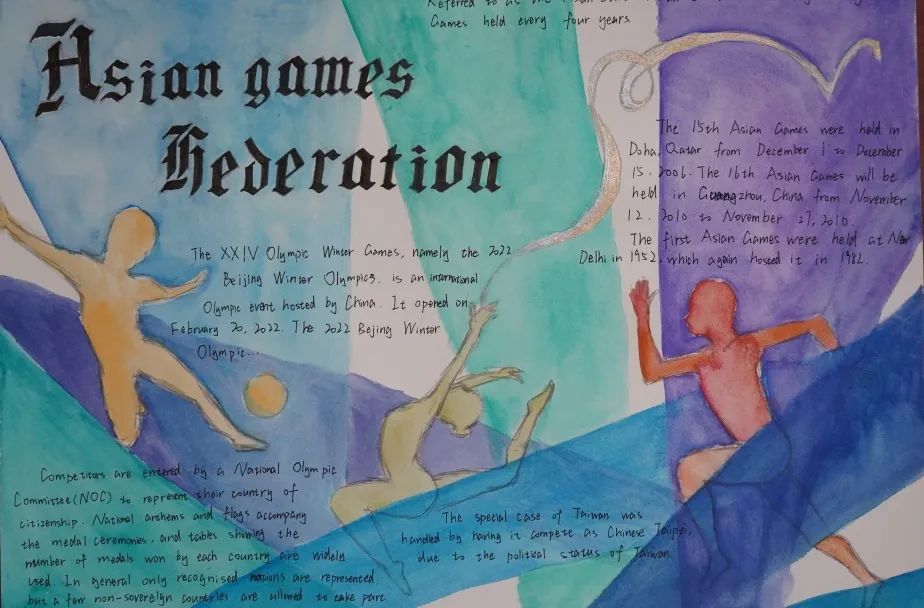 Games held every four years
Asian games
Hederation
The 15th Asian Games were held in
Doha, Qatar from December 1 to December
15. 2006. The 16th Asian Games will be
held in Guangzhou, China from November
12. 2010 to November 27, 2010.
The first Asian Games were held at New
Delhi in 1952, which again hosted it in 1982.
The XXIV Olympic Winter Games, namely the 2022
Beijing Winter Olympics. is an international
Olympic event hosted by China. It opened on
February 20, 2022. The 2022 Bejing Winter
Olympic...
Competitors are entered by a National Olympic
Committee(NOC) to represent their country of
citizenship. National anthems and flags accompany
the medal ceremonies, and tables showing the
number of medals won by each country are widely
used. In general only recognised nations are represented,
but a few non-sovereign countries are allowed to take part.
The special case of Taiwan was
handled by having it compete as Chinese Taipei,
due to the political status of Taiwan.